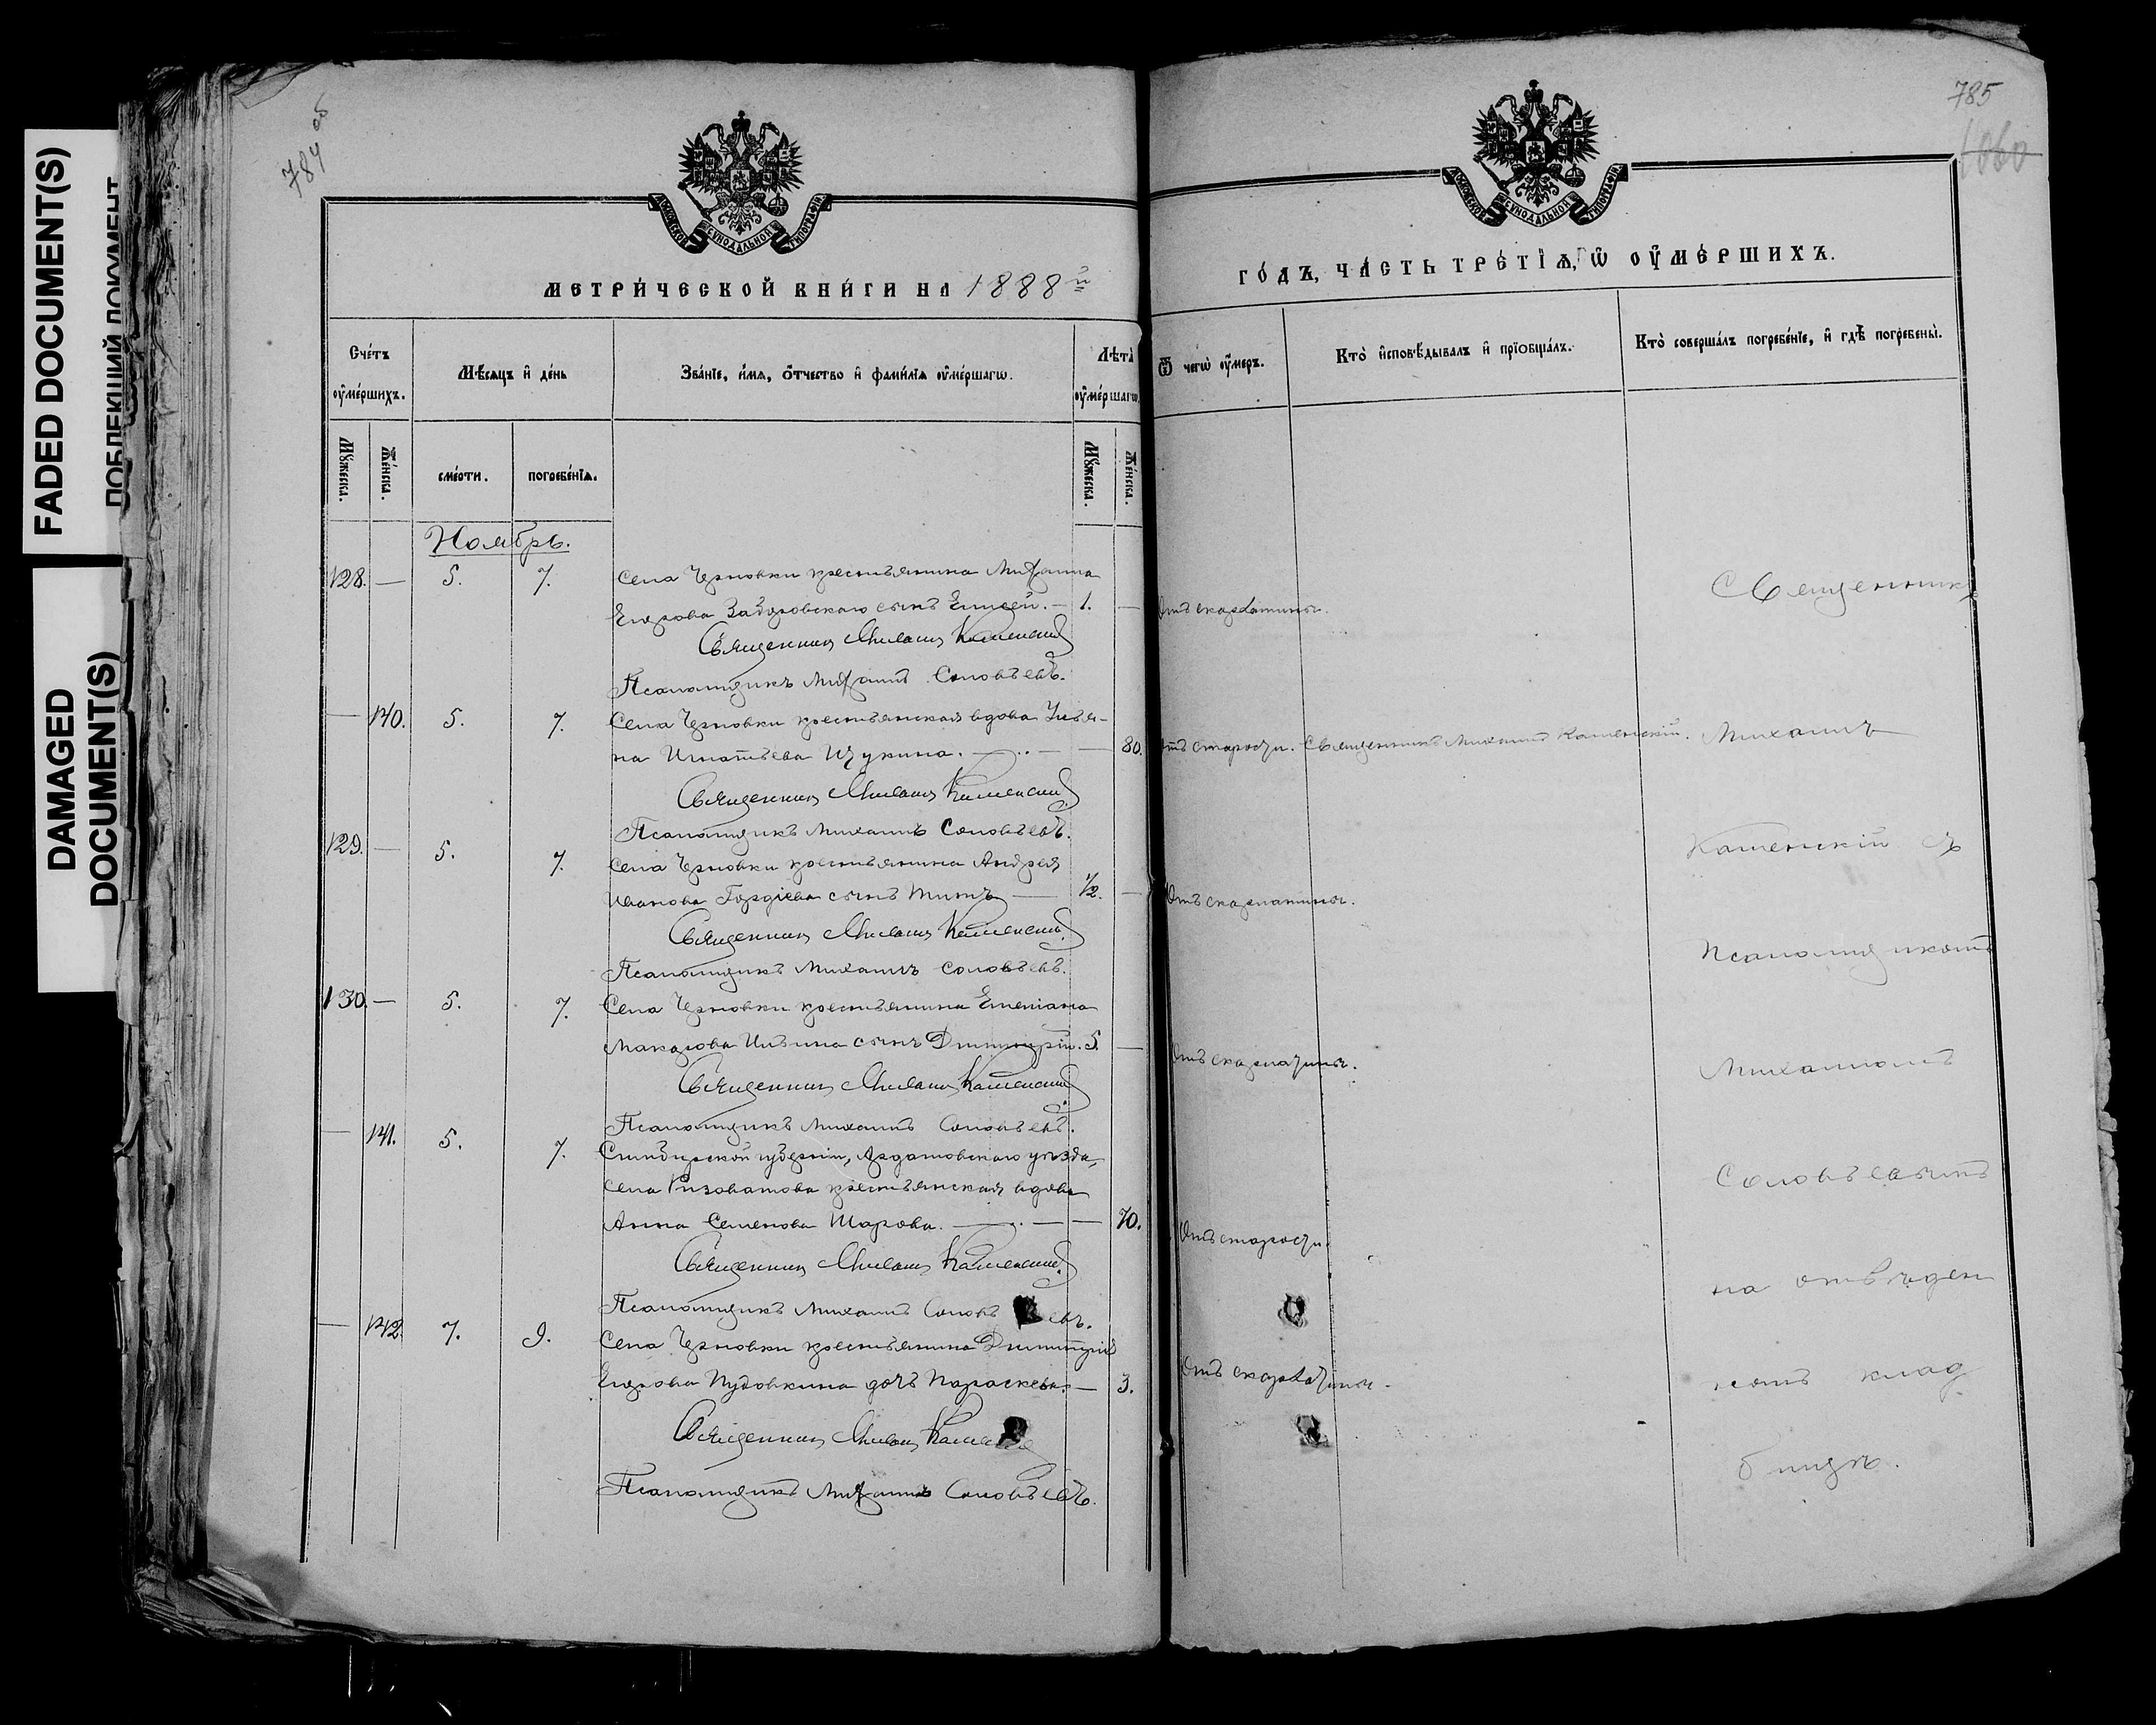 FADED DOCUMENT(S)
ПОБЛЕКШИЙ ДОКУМЕНТ
DAMAGED
DOCUMENT(S)
784 об
МЕТРИЧЕСКОЙ КНИГИ НА 1888й
Счетъ умершихъ.
Мѣсяцъ и день
Званіе, имя, отчество и фамилія умершаго.
Лѣта умершаго.
Мужеска.
Женска.
смерти.
погребенія.
Мужеска.
Женска.
Ноябрь.
128. — 5. 7. Села Черновки крестьянина Михаила
Егорова сынъ Елисей. — 1. —
Священникъ Михаилъ Каменскій
Псаломщикъ Михаилъ Соловьевъ.
— 140. 5. 7. Села Черновки крестьянская вдова Улья-
на Игнатьева Щукина. — 80.
Священникъ Михаилъ Каменскій
Псаломщикъ Михаилъ Соловьевъ.
129. — 5. 7. Села Черновки крестьянина Андрея
Иванова Гордѣева сынъ Титъ — 1/2. —
Священникъ Михаилъ Каменскій
Псаломщикъ Михаилъ Соловьевъ.
130. — 5. 7. Села Черновки крестьянина Емеліана
Макарова Ильина сынъ Димитрій. 5. —
Священникъ Михаилъ Каменскій
Псаломщикъ Михаилъ Соловьевъ.
— 141. 5. 7. Симбирской губерніи, Ардатовскаго уѣзда,
села Кизоватова крестьянская вдова
Анна Семенова Шарова. — — 70.
Священникъ Михаилъ Каменскій
Псаломщикъ Михаилъ Соловьевъ.
— 142. 7. 9. Села Черновки крестьянина Димитрія
Егорова Пудовкина дочь Параскева. — 3.
Священникъ Михаилъ
Псаломщикъ Михаилъ Соловьевъ.
785
1060
ГОДЪ, ЧАСТЬ ТРЕТІЯ, Ѡ УМЕРШИХЪ.
Ѿ чего умеръ.
Кто исповѣдывалъ и пріобщалъ.
Кто совершалъ погребеніе, и гдѣ погребены.
Отъ скарлатины.
Отъ старости. Священникъ Михаилъ Каменскій.
Отъ скарлатины.
Отъ скарлатины.
Отъ старости.
Отъ скарлатины.
Священникъ
Михаилъ
Каменскій съ
Псаломщикомъ
Михаиломъ
Соловьевымъ
на отведен
номъ клад
бищѣ.